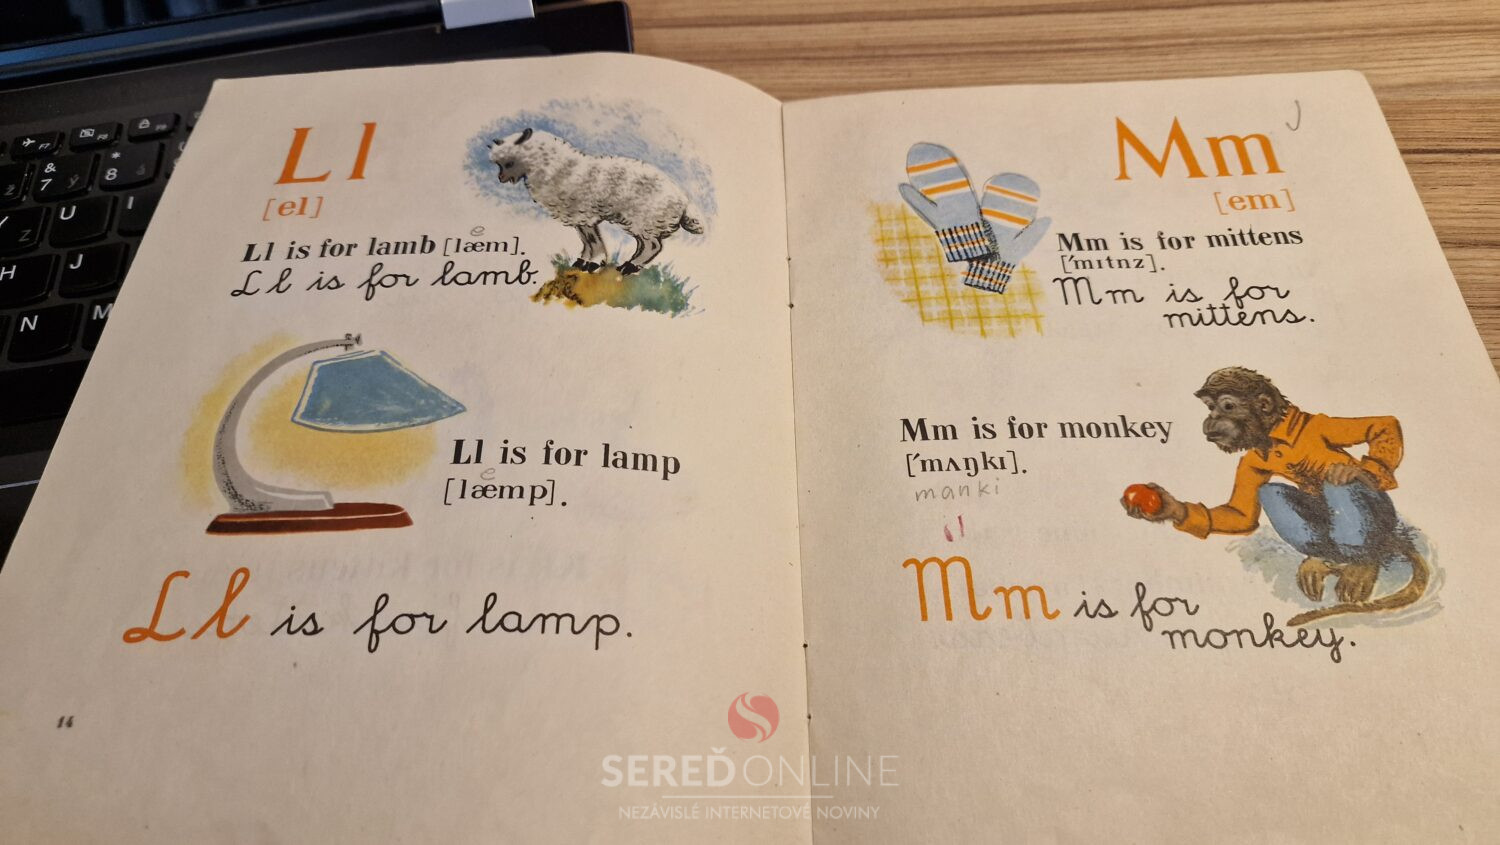 L l
[el]
Ll is for lamb [læm].
e
Ll is for lamb.
Ll is for lamp
[læmp].
e
Ll is for lamp.
14
Mm
[em]
Mm is for mittens
[ˈmɪtnz].
Mm is for
mittens.
Mm is for monkey
[ˈmʌŋkɪ].
manki
Mm is for
monkey.
F7
F8
F9
&
7
ý
*
8
á
ž
Y
Z
U
I
H
J
N
M
SEREĎ ONLINE
NEZÁVISLÉ INTERNETOVÉ NOVINY